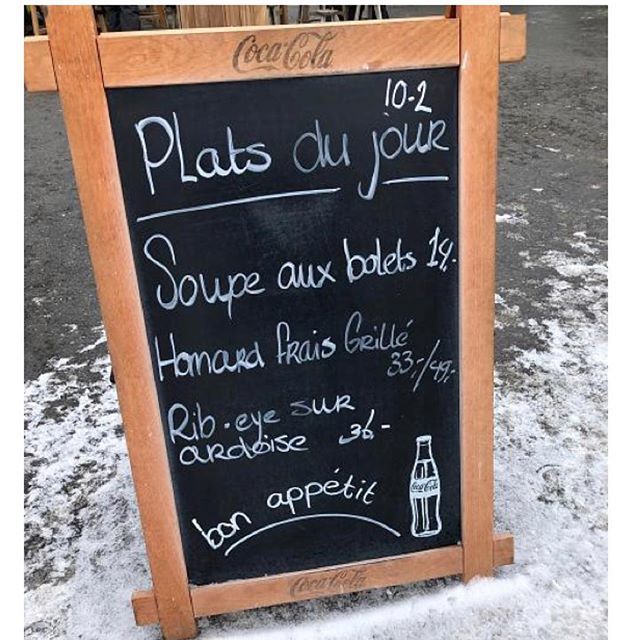 Coca-Cola
10-2
Plats du jour
Soupe aux bolets 14.-
Homard frais Grillé
33.-/49.-
Rib-eye sur
ardoise 36.-
bon appétit
Coca-Cola
Coca-Cola